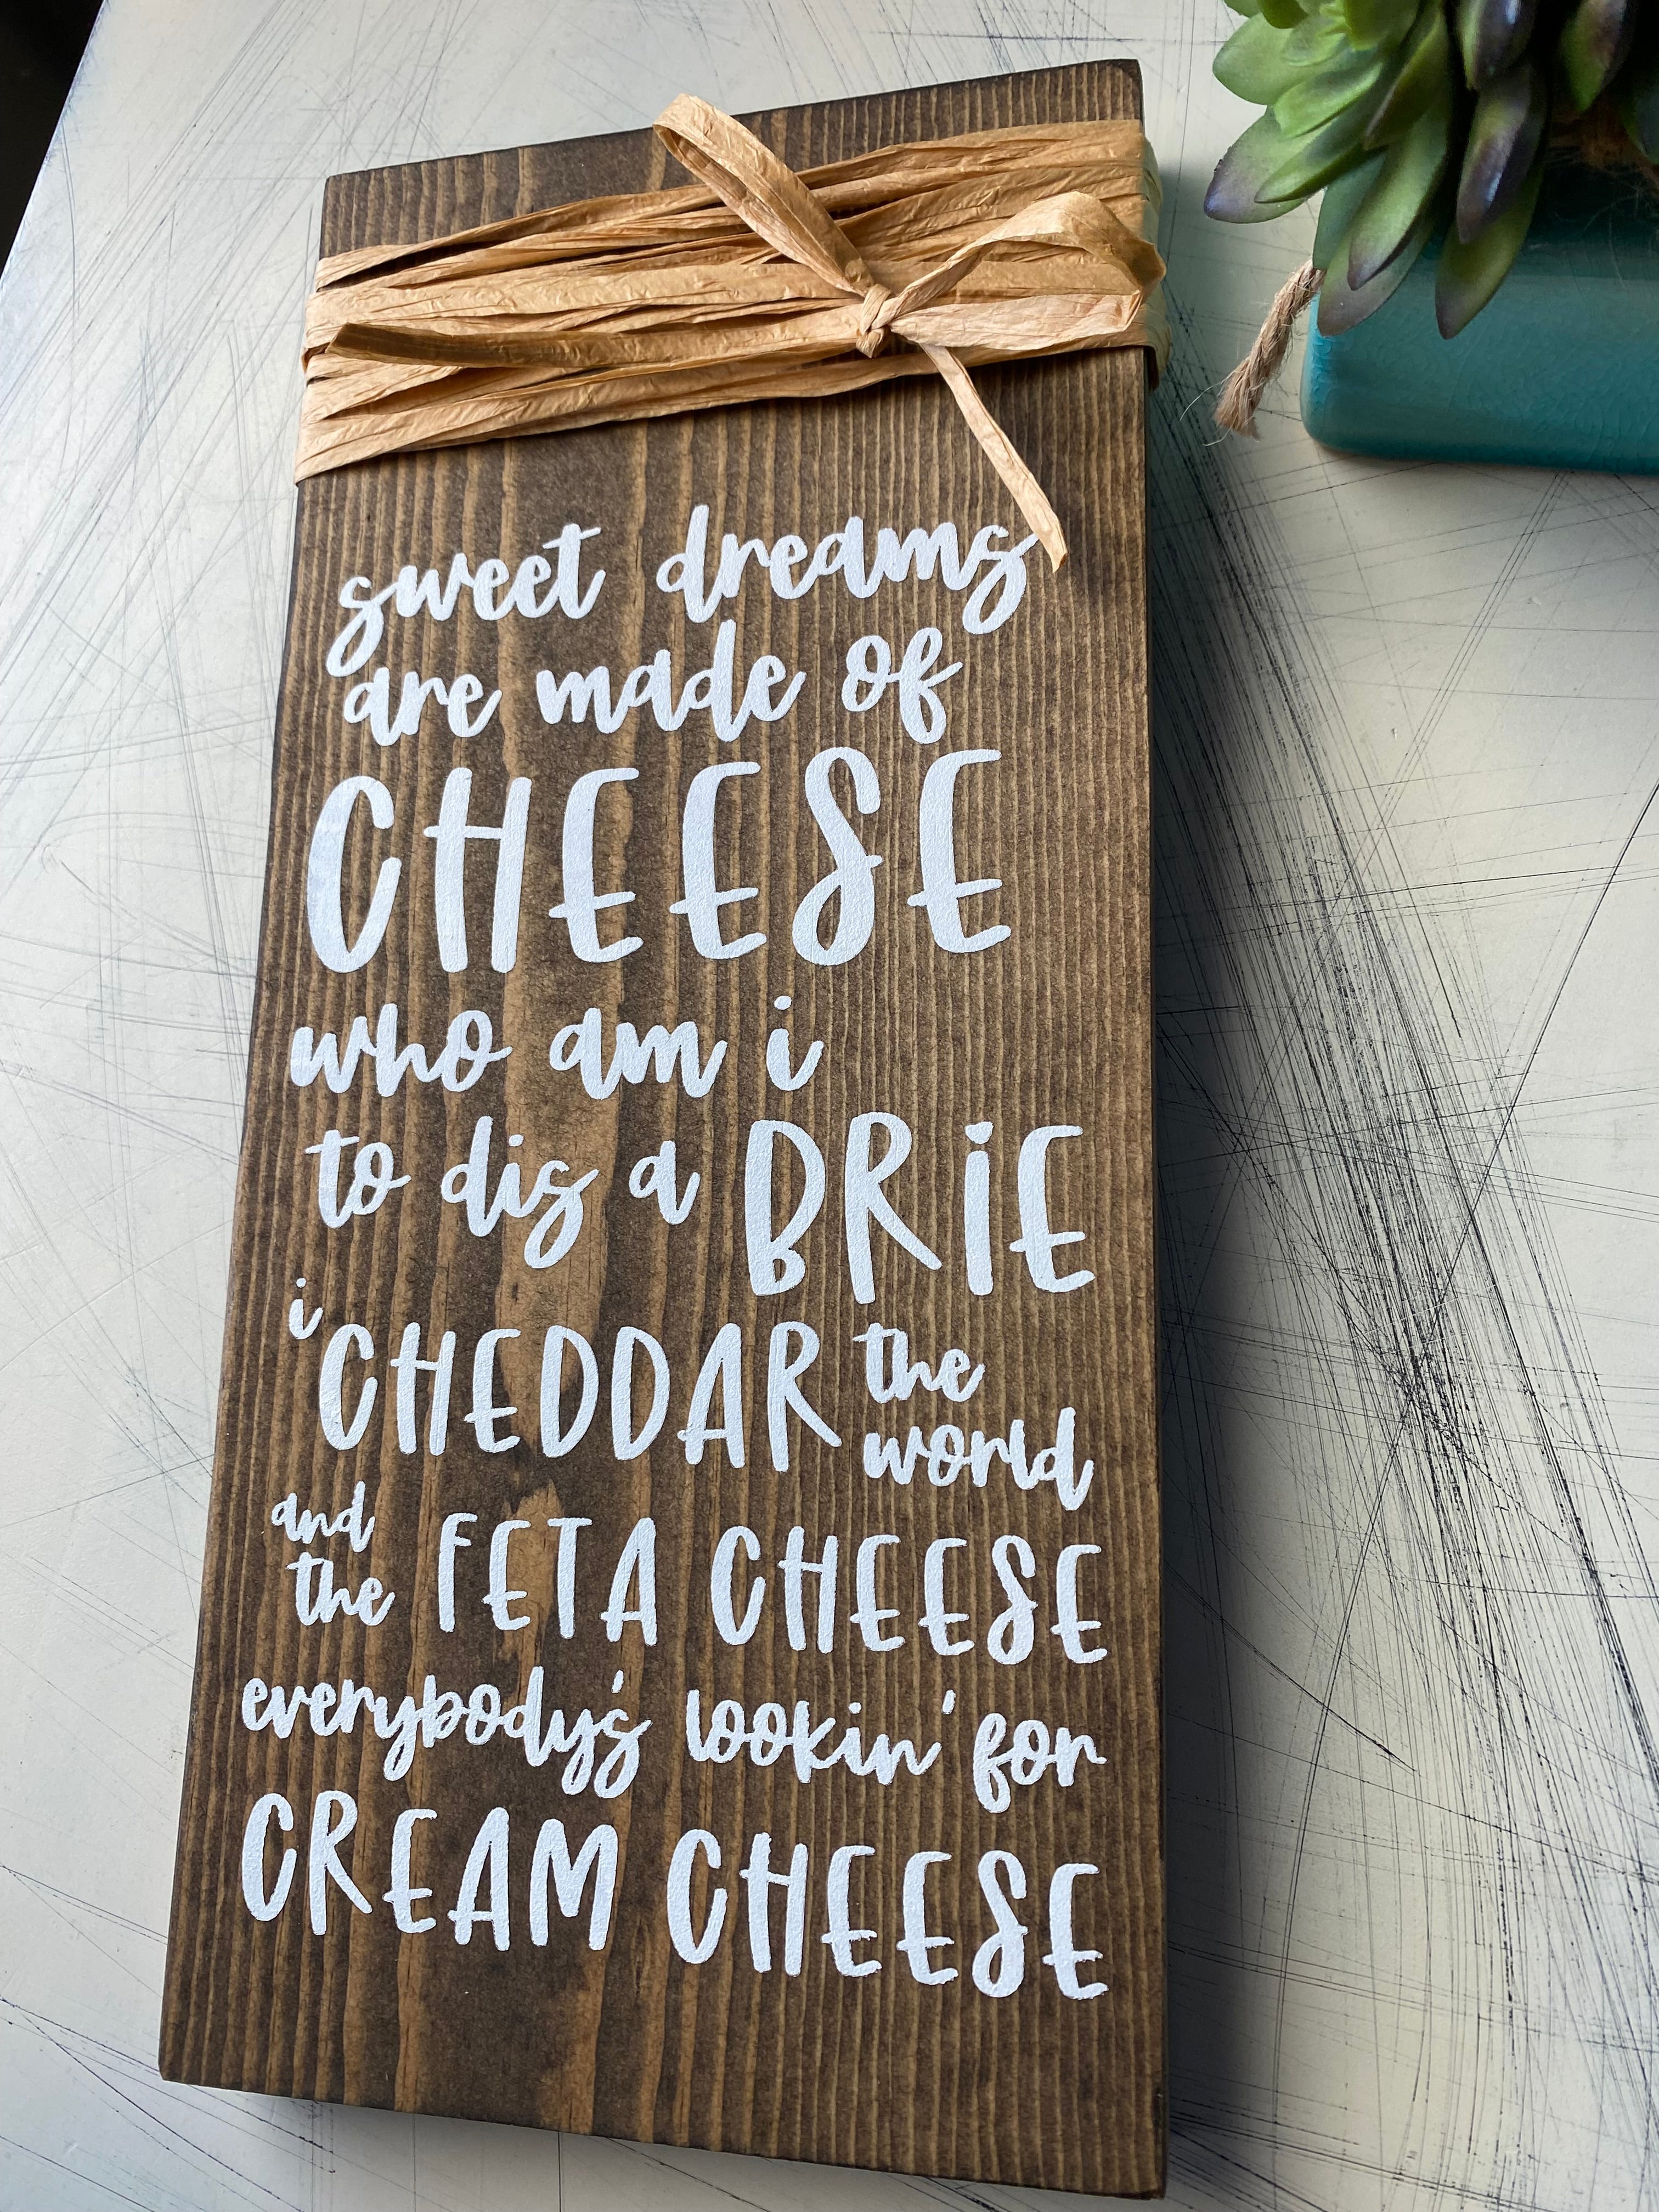 sweet dreams
are made of
CHEESE
who am i
to dis a BRiE
i CHEDDAR the
world
and
the FETA CHEESE
everybody's lookin' for
CREAM CHEESE